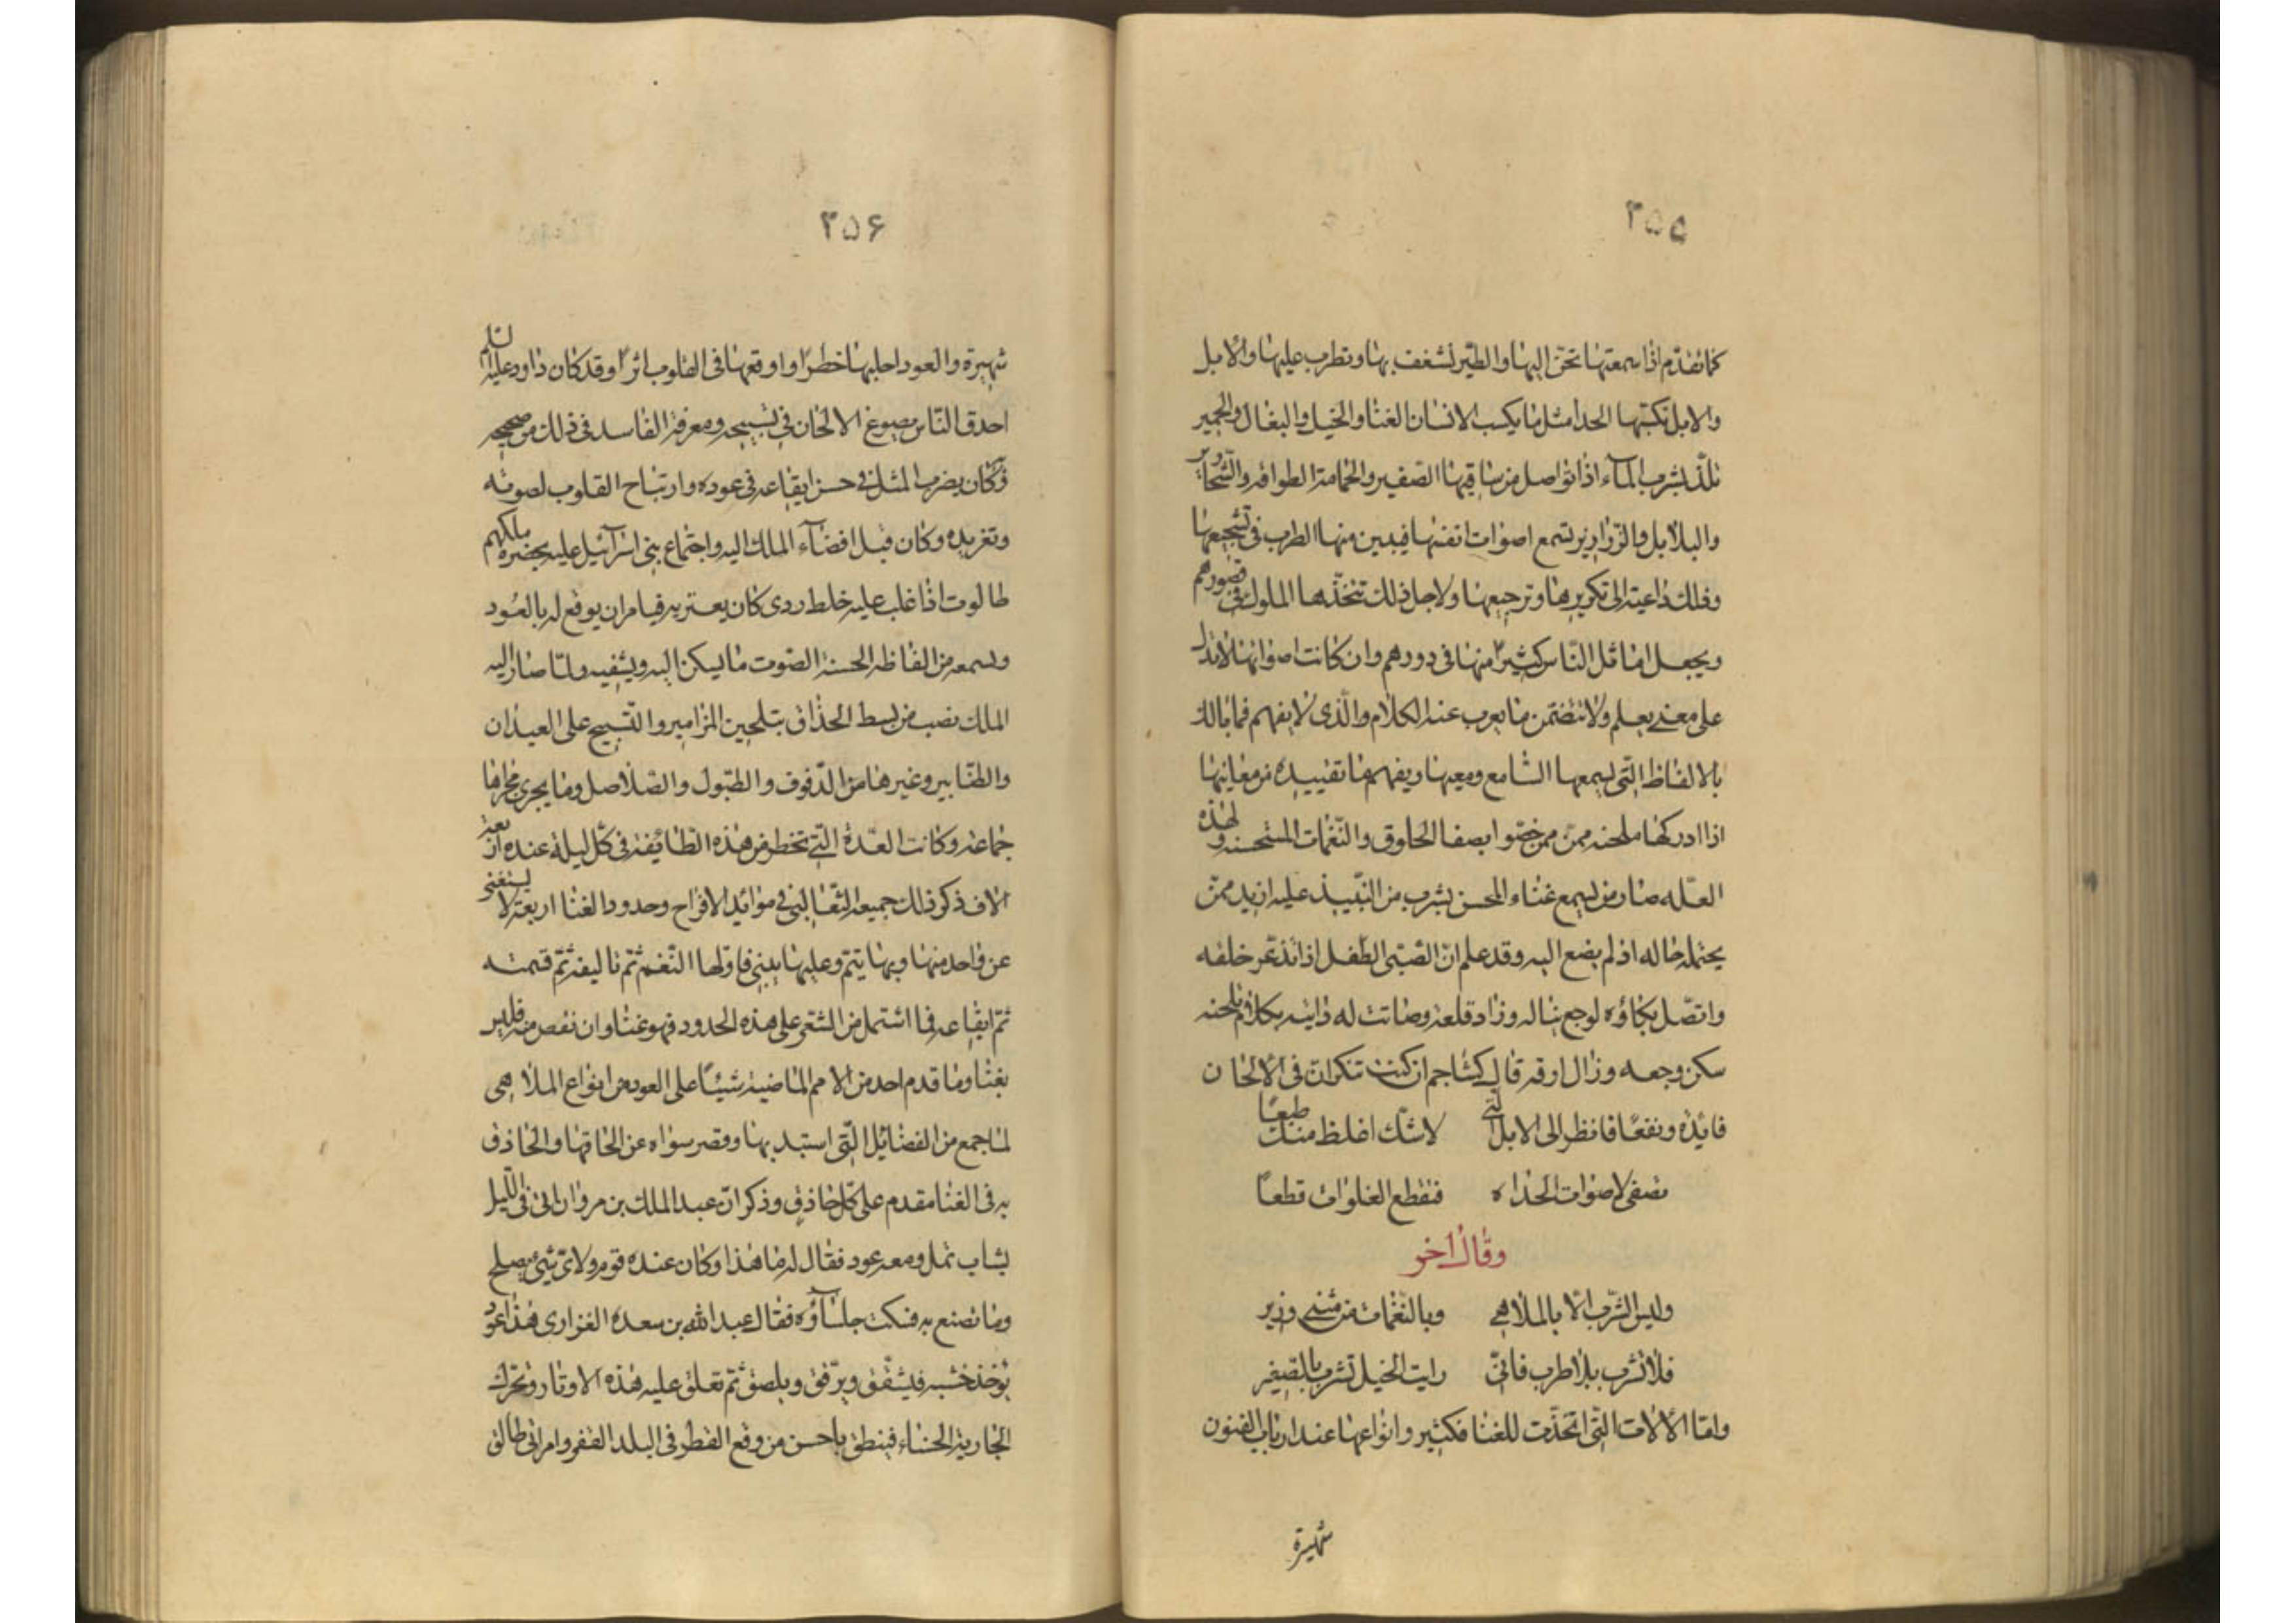 ٣۵۵
كما تقدّم اذا سمعتها تحنّ اليها والطير تشغف بها وتطرب عليها والابل
والابل نكبتها الحدا مثل ما يكسب الانسان الغنا والخيل والبغال والحمير
تلذّ بشرب المآء اذا تواصل من ساقيها الصفير والحمامة الطوافه والشحارير
والبلابل والزرازير تسمع اصوات انفسها فيبين منها الطرب فى تشجيعها
وذلك داعية الى تكريرها وترجيعها ولاجل ذلك تتخذها الملوك فى قصورهم
ويجعل اماثل الناس كثيرًا منها فى دورهم وان كانت اصواتها لا تدل
على معنى يعلم ولا تتضمن ما يعرب عنه الكلام والّذى لا يفهم فما بالك
بالالفاظ التى يسمعها السامع ويعيها ويفهم ما تفييده من معانيها
اذا ادركها ملحنه ممن ممن خصّوا بصفا الحلوق والنّغمات المستحسنه ولهذه
العلّه صار من يسمع غناء المحسن يشرب من النّبيذ عليه ازيد ممّن
يحتمله حاله اذ لم يضع اليه وقد علم انّ الصّبى الطّفل اذا تذعّر خلقه
واتّصل بكاؤه لوجع يناله وزاد قلعه وصاتت له دايته بكلام تلحنه
سكن وجعه وزال ارقه قال كشاجم ان كنت تنكر انّ فى الالحان
فائده ونفعًا فانظر الى الابل الّتى لاشك اغلظ منك طبعًا
تصغى لاصوات الحداه فتقطع الغلوات قطعًا
وقال اخو
وليس الشّرب الا بالملاهى وبالنّغمات من مثنى وزير
فلا تشرب بلا طرب فانّى رايت الخيل تشرب بالصّفير
وامّا الالات التّى اتخذت للغنا فكثير وانواعها عند ارباب الفنون
شهيرة
٣۵۶
شهيرة والعود اجلها خطرًا واوقعها فى القلوب اثرًا وقد كان داود عليه السلم
احدق النّاس بصوغ الالحان فى تسبيحه ومعرفة الفاسد فى ذلك من صحيحه
وكان يضرب المثل فى حسن ايقاعه فى عوده وارتياح القلوب لصوته
وتغريده وكان قبل افضآء الملك اليه واجتماع بنى اسرآئيل عليه يحضره ملكهم
طالوت اذا غلب عليه خلط ردى كان يعتريه فيامران يوقع له بالعود
ويسمعه من الفاظه الحسنة الصّوت ما يسكن اليه ويشفيه ولمّا صار اليه
الملك نصب من بسط الحذاق بتلحين المزامير والتّسبيح على العيدان
والطنابير وغيرها من الدّفوف والطبول والصّلاصل وما يجرى مجراها
جماعة وكانت العدّة التى تخطر من هذه الطائفة فى كلّ ليلة عنده اربعة
الاف ذكر ذلك جميعه الثعالبى فى موائد الافراح وحدود الغنا اربعة لا يستغنى
عن واحد منها وبها يتم وعليها يبنى فاوّلها النّغم ثمّ تاليفه ثمّ قسمته
ثمّ ايقاعه فما اشتمل من الشعر على هذه الحدود فهو غنا وان نقص منه فليس
بغنا وما قدم احد من الامم الماضية شيئًا على العود من انواع الملاهى
لما جمع من الفضائل الّتى استبد بها وقصر سواه عن الحاقها والحاذق
به فى الغنا مقدم على كلّ حاذق وذكر انّ عبد الملك بن مروان اتى فى اللّيل
بشاب ثمل ومعه عود فقال له ما هذا وكان عنده قوم ولاىّ شىء يصلح
وما تصنع به فسكت جلسآؤه فقال عبد الله بن سعده الفزارى هذا عود
يؤخذ خشبه فيشقّق ويرقّق ويلصق ثمّ تعلق عليه هذه الاوتار وتحرّك
الجارية الحسناء فينطق باحسن من وقع القطر فى البلد القفر وامراتى طالق